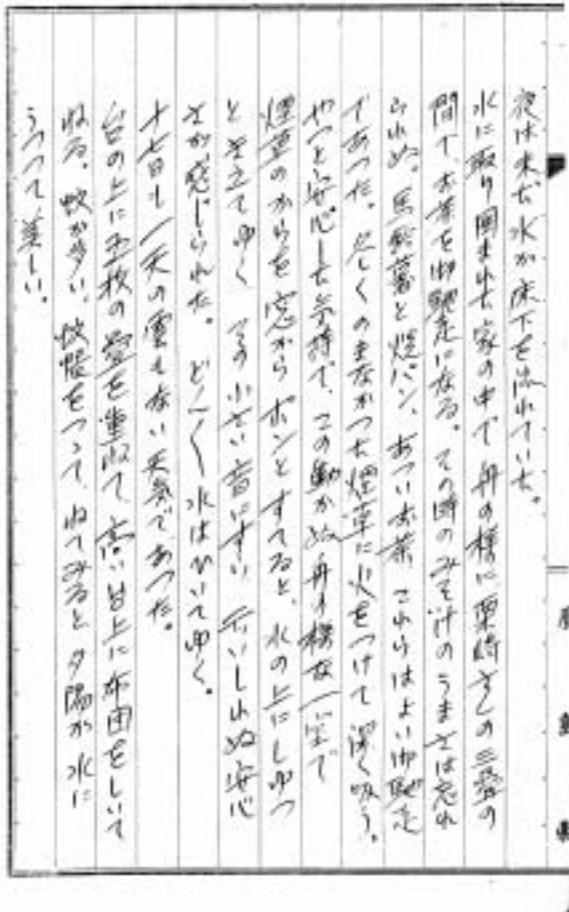 夜は未だ水が床下を流れていた。
水に取り囲まれた家の中で舟の様に栗崎さんの三畳の
間で、お茶を御馳走になる。その時のみそ汁のうまさは忘れ
られぬ。馬鈴薯と焼パン、あつい お茶 これらはよい御馳走
であつた。久しくのまなかつた煙草に火をつけて深く吸う。
やつと安心した気持で、この動かぬ舟の様な一室で
煙草のからを窓からポンとすてると、水の上にしゆつ
と音立てゆく その小さい音にすい 云いしれぬ安心
さが感じられた。どんどん水はひいてゆく。
十七日も一天の雲もない天気であつた。
台の上に五枚の畳を重ねて、高い台上に布団をしいて
ねる。蚊が多い、蚊帳をつつて、ねてみると夕陽が水に
うつつて美しい。
島
縣